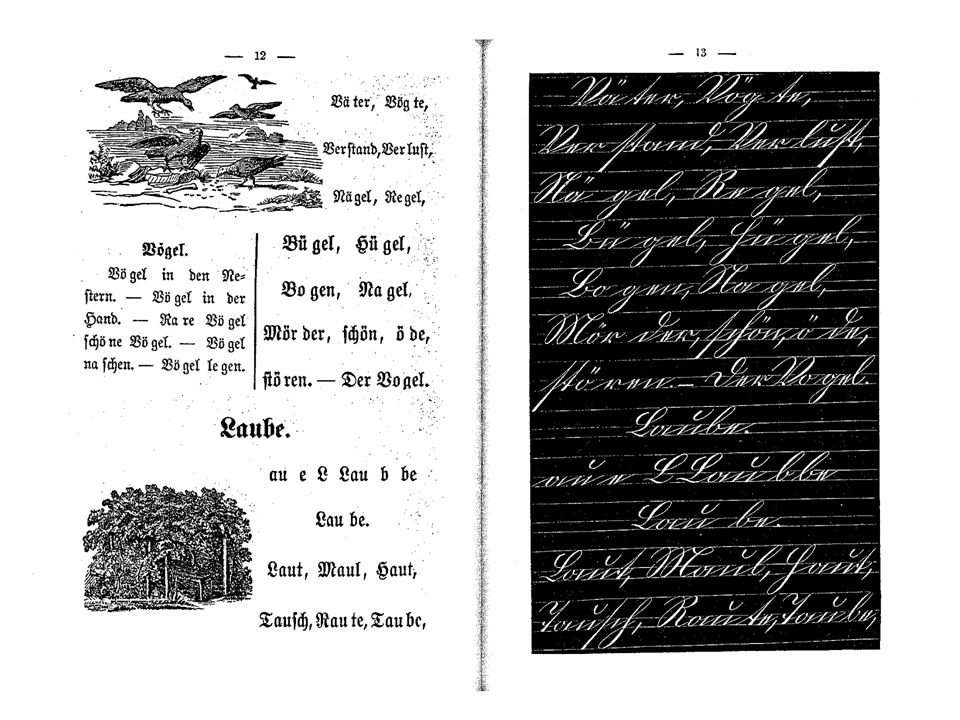 — 12 —
Vä ter, Vög te,
Ver stand, Ver lust,
Nä gel, Re gel,
Vögel.
Vö gel in den Ne-
stern. — Vö gel in der
Hand. — Ra re Vögel
schö ne Vögel. — Vögel
na schen. — Vö gel le gen.
Bü gel, Hü gel,
Bo gen, Na gel,
Mör der, schön, ö de,
stö ren. — Der Vo gel.
Laube.
au e L Lau b be
Lau be.
Laut, Maul, Haut,
Tausch, Rau te, Tau be,
— 13 —
Vä ter, Vög te,
Ver stand, Ver lust,
Nä gel, Re gel,
Bü gel, Hü gel,
Bo gen, Na gel,
Mör der, schön, ö de,
stö ren. — Der Vo gel.
Laube.
au e L Lau b be
Lau be.
Laut, Maul, Haut,
Tausch, Rau te, Tau be,